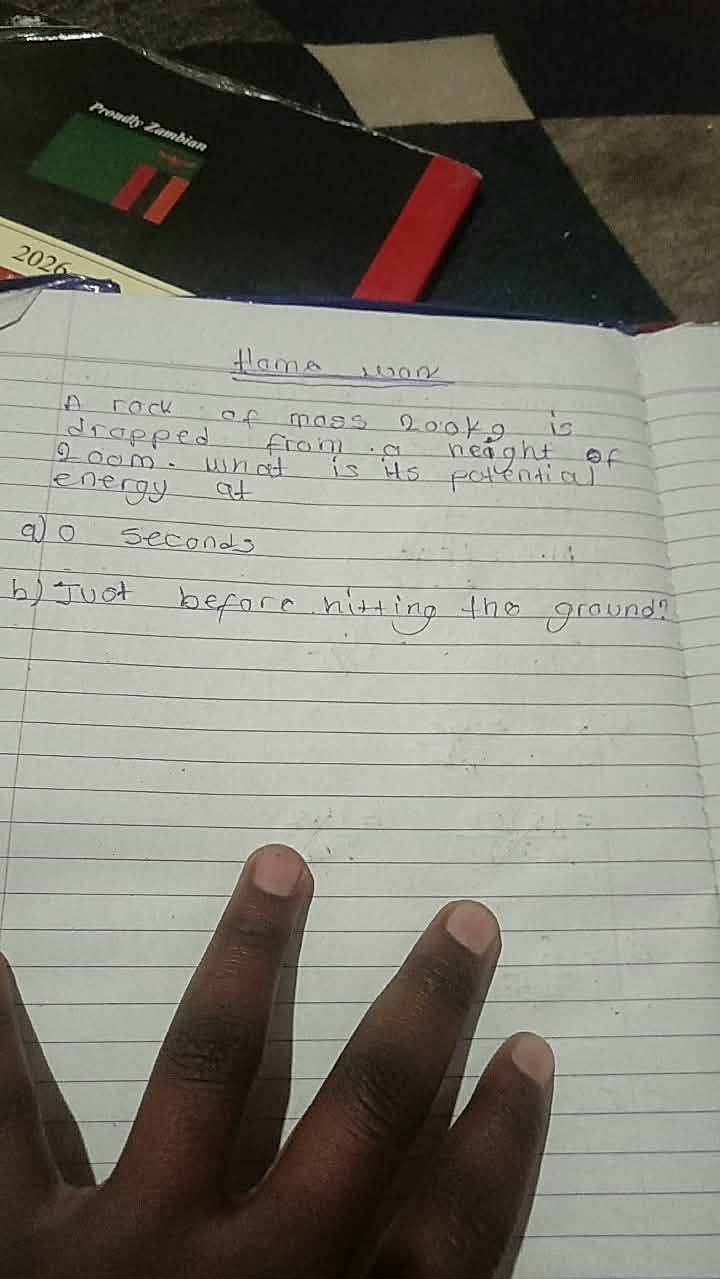 Proudly Zambian
2026
Home work
A rock of mass 200kg is
dropped from a height of
200m. what is its potential
energy at
a) 0 seconds
b) Just before hitting the ground?